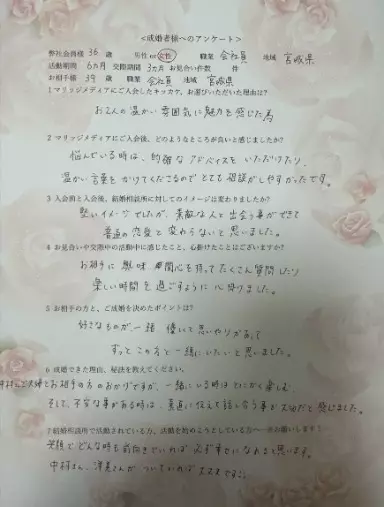 <成婚者様へのアンケート>
弊社会員様 36 歳 男性 or 女性 職業 会社員 地域 宮城県
活動期間 6カ月 交際期間 3カ月 お見合い件数 件
お相手様 39 歳 職業 会社員 地域 宮城県
1 マリッジメディアにご入会したキッカケ、お選びいただいた理由は?
お2人の温かい雰囲気に魅力を感じた為
2 マリッジメディアにご入会後、どのようなところが良いと感じましたか?
悩んでいる時は、的確なアドバイスをいただけたり、
温かい言葉をかけてくださるのでとても相談がしやすかったです。
3 入会前と入会後、結婚相談所に対してのイメージは変わりましたか?
堅いイメージでしたが、素敵な人と出会う事ができて
普通の恋愛と変わらないと思いました。
4 お見合いや交際中の活動中に感じたこと、心掛けたことはございますか?
お相手に興味 関心を持ってたくさん質問したり
楽しい時間を過ごすように心掛けました。
5 お相手の方と、ご成婚を決めたポイントは?
好きなものが一緒 優しくて思いやりがあって
ずっとこの方と一緒にいたいと思いました。
6 成婚できた理由、秘法を教えてください。
夫婦とお相手の方のおかげですが、一緒にいる時はとにかく楽しむ
そして、不安な事がある時は、素直に伝えて話し合う事が大切だと感じました。
7 結婚相談所で活動されている方、活動を始めようとしている方へ一言お願いします!
笑顔でどんな時も前向きでいれば必ず幸せになれると思います。
中村さん、さんがついていれば大丈夫です